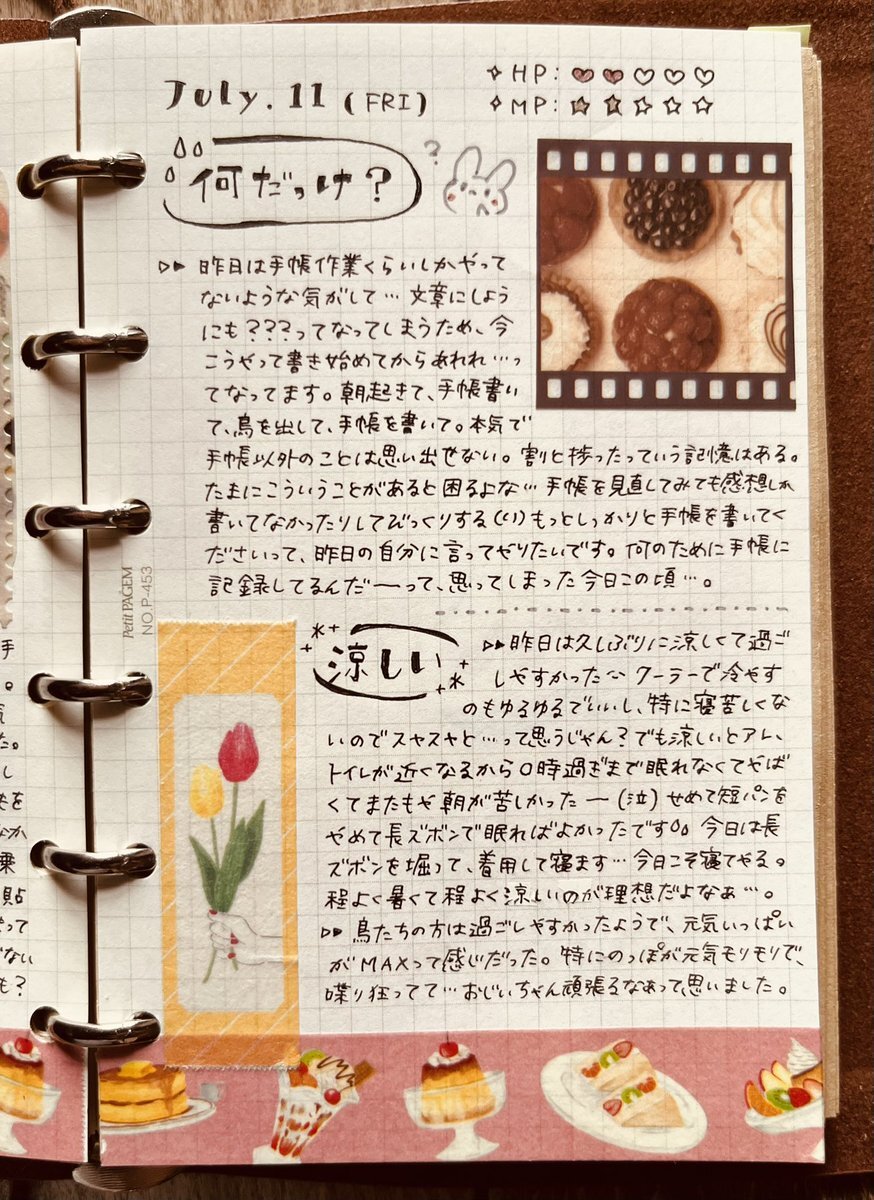 July. 11 (FRI)
HP:
MP:
何だっけ?
?
昨日は手帳作業くらいしかやって
ないような気がして… 文章にしよう
にも???ってなってしまうため、今
こうやって書き始めてからあれれ…っ
てなってます。朝起きて、手帳書い
て、鳥を出して、手帳を書いて。本気で
手帳以外のことは思い出せない。割と捗ったっていう記憶はある。
たまにこういうことがあると困るよな… 手帳を見直してみても感想しか
書いてなかったりしてびっくりする(くり)もっとしっかりと手帳を書いてく
ださいって、昨日の自分に言ってやりたいです。何のために手帳に
記録してるんだーって、思ってしまった今日この頃…。
Petit PAGEM
NO.P-453
涼しい
昨日は久しぶりに涼しくて過ご
しやすかった〜 クーラーで冷やす
のもゆるゆるでいいし、特に寝苦しくな
いのでスヤスヤと…って思うじゃん?でも涼しいとアレ、
トイレが近くなるから0時過ぎまで眠れなくてやば
くてまたもや朝が苦しかったー(泣)せめて短パンを
やめて長ズボンで眠ればよかったです 今日は長
ズボンを堀って、着用して寝ます…今日こそ寝てやる。
程よく暑くて程よく涼しいのが理想だよなぁ…。
鳥たちの方は過ごしやすかったようで、元気いっぱい
がMAXって感じだった。特にのっぽが元気モリモリで、
喋り狂ってて…おじいちゃん頑張るなあって思いました。